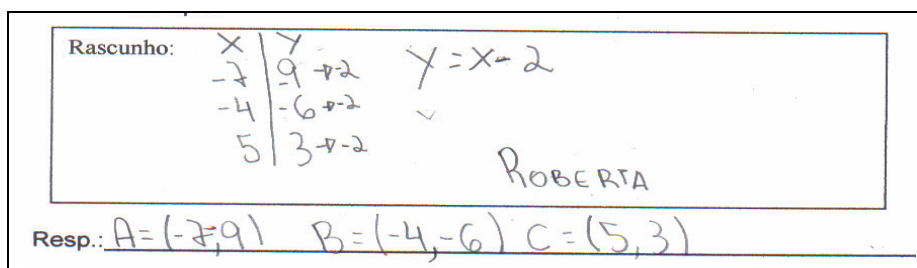 Rascunho: X | Y Y = X - 2
-7 | -9 → -2
-4 | -6 → -2
5 | 3 → -2
ROBERTA
Resp.: A = (-7,-9) B = (-4,-6) C = (5,3)